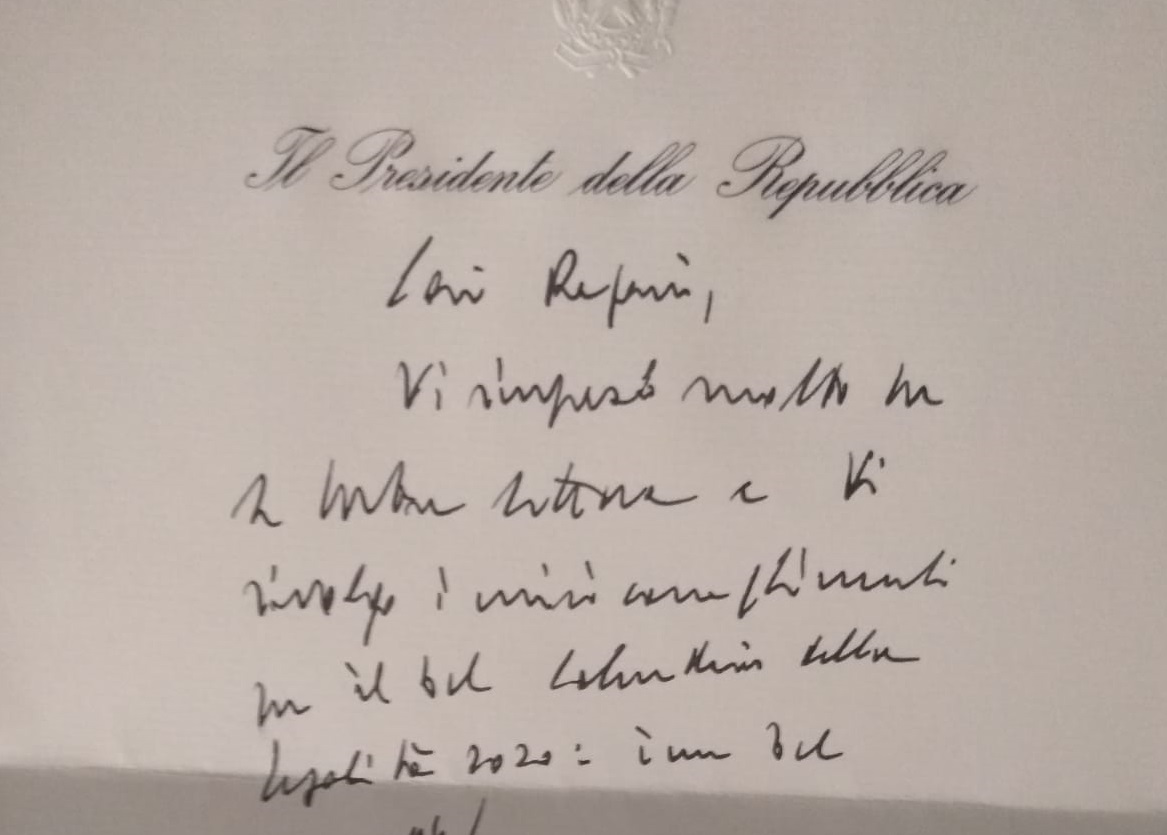 Il Presidente della Repubblica
Cari Ragazzi,
Vi ringrazio molto per
la vostra lettera e Vi
rivolgo i miei complimenti
per il bel Calendario della
legalità 2020: è un bel